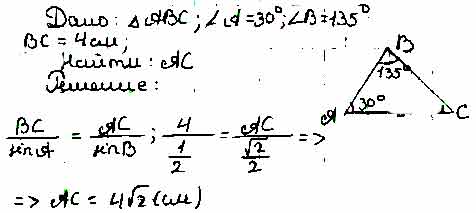 Дано: △ABC; ∠A=30°; ∠B=135°
BC = 4 см;
Найти: AC
Решение:
B
135°
A
30°
C
BC/sinA = AC/sinB; 4/(1/2) = AC/(√2/2) =>
=> AC = 4√2 (см)